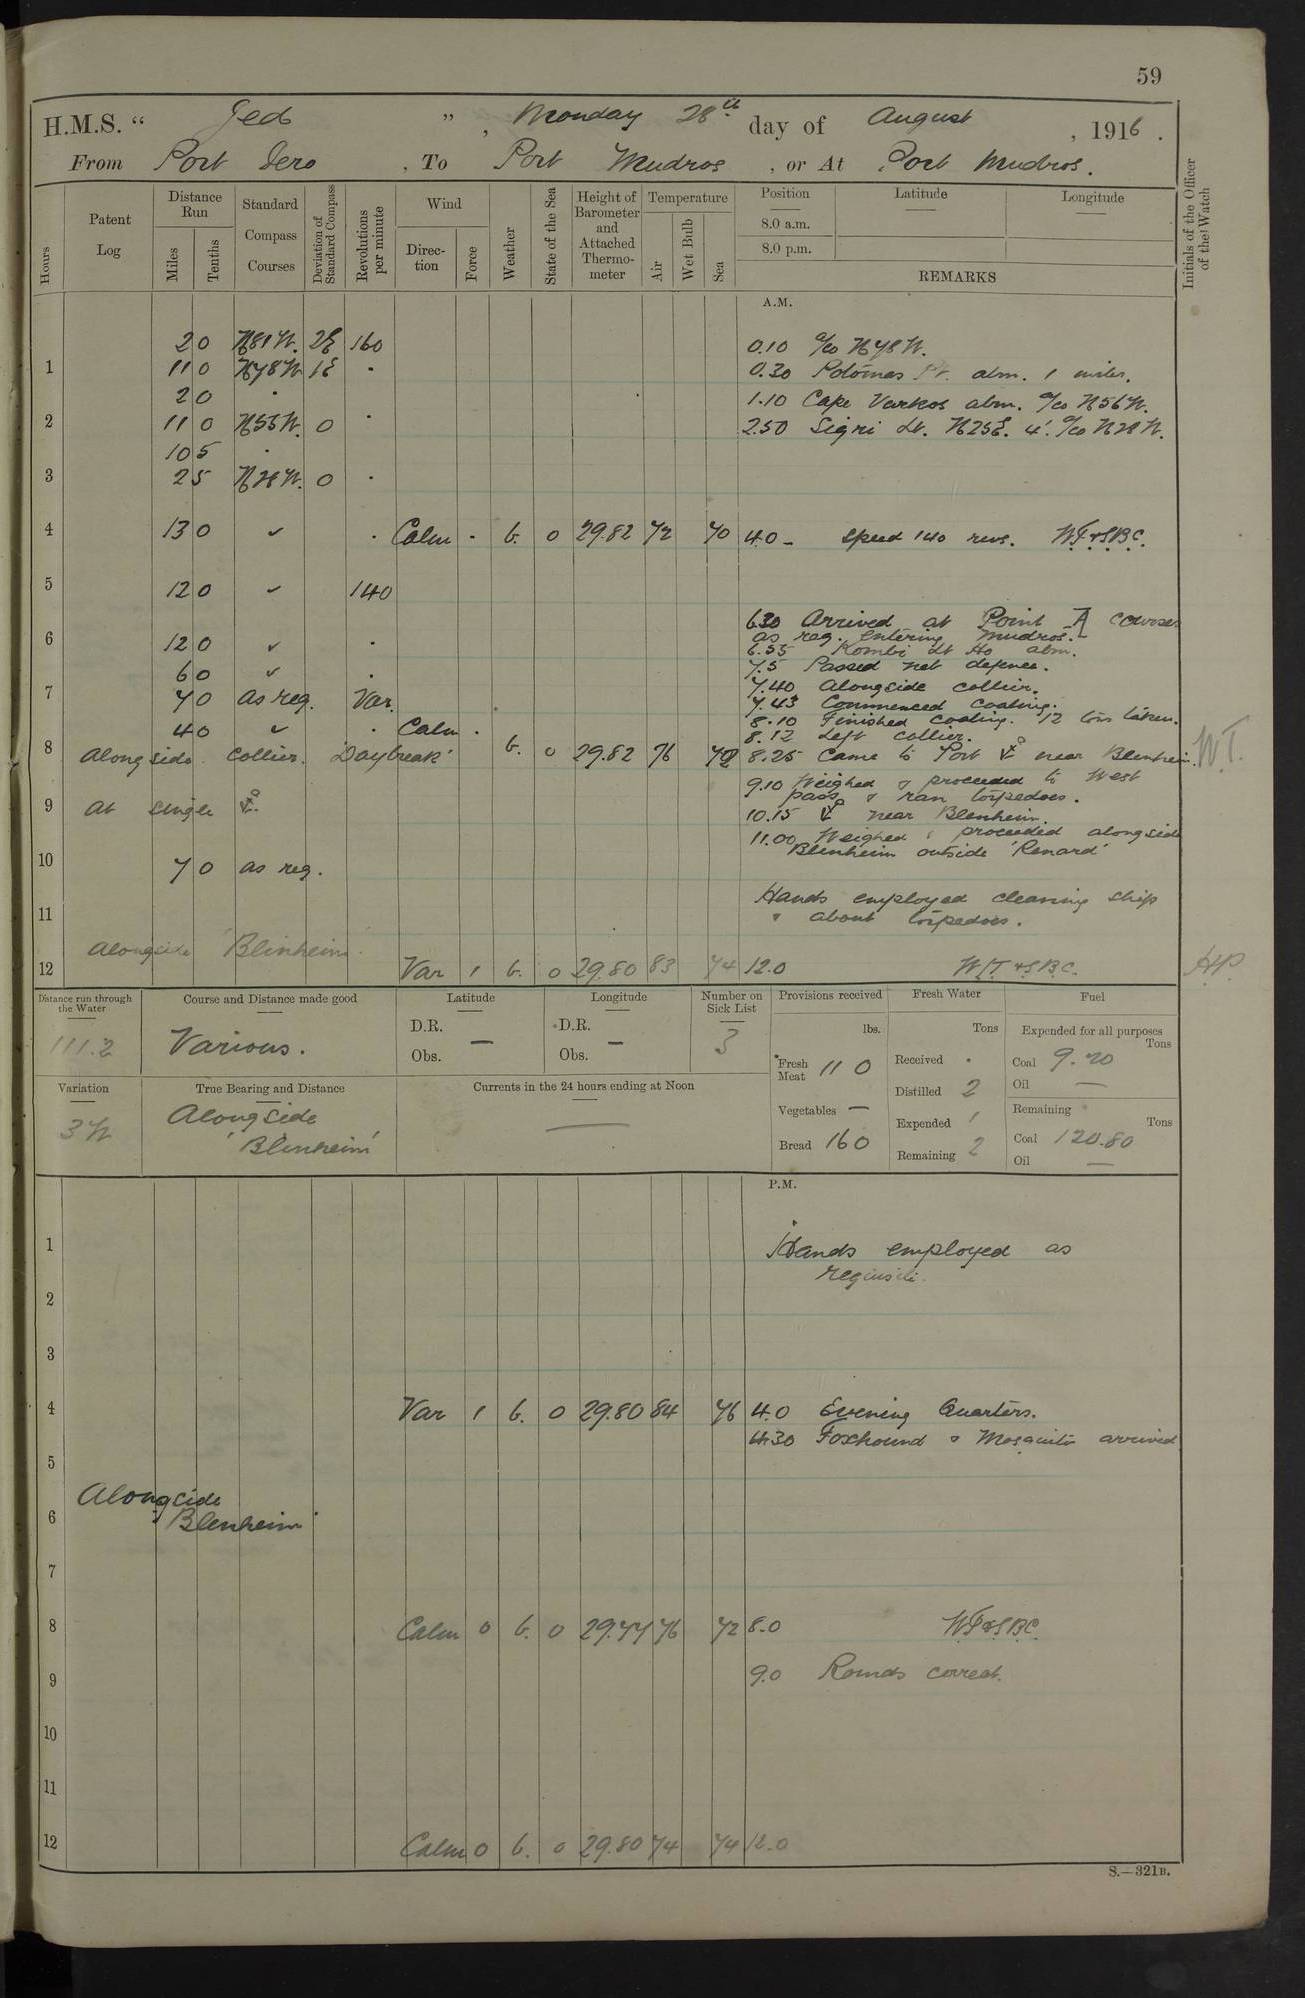 59
H.M.S. “ Jed ” , Monday 28th day of August , 1916 .
From Port Iero . To Port Mudros , or At Port Mudros.
Hours
Patent Log
Distance Run
Miles
Tenths
Standard Compass Courses
Deviation of Standard Compass
Revolutions per minute
Wind
Direction
Force
Weather
State of the Sea
Height of Barometer and Attached Thermometer
Temperature
Air
Wet Bulb
Sea
Position
Latitude
Longitude
8.0 a.m.
8.0 p.m.
REMARKS
Initials of the Officer of the Watch
A.M.
2 0 N81W. 2E 160 0.10 a/co N78W.
1 11 0 N78W 1E " 0.30 abm. 1 miles.
2 0 " 1.10 Cape abm. a/co N56W.
2 11 0 N55W. 0 " 2.50 Sigri Lt. N25E. 4'. a/co
10 5 "
3 2 5 0 "
4 13 0 ✓ " Calm - b. 0 29.82 72 70 4.0 - Speed 140 revs. W.T. & S.B.C.
5 12 0 ✓ 140
6.30 Arrived at Point A courses
6 12 0 ✓ " as req. entering Mudros.
6.55 Kombi Lt Ho abm.
6 0 ✓ " 7.5 Passed net defence.
7.40 Alongside collier.
7 7 0 as req. Var. 7.43 Commenced coaling.
8.10 Finished coaling. 12 tons taken.
4 0 ✓ " Calm - 8.12 Left collier.
8 Alongside collier 'Daybreak' b. 0 29.82 76 72 8.25 Came to Port ⚓ near Blenheim. W.T.
9.10 Weighed & proceeded to West
pass & ran torpedoes.
9 At single ⚓. 10.15 ⚓ near Blenheim.
11.00 Weighed & proceeded alongside
Blenheim outside 'Renard'
10 7 0 as req.
Hands employed cleaning ship
11 & about torpedoes.
Alongside 'Blenheim'
12 Var 1 b. 0 29.80 83 74 12.0 W.T. & S.B.C. H.P.
Distance run through the Water
111.2
Course and Distance made good
Various.
Latitude
D.R.
Obs. —
Longitude
D.R.
Obs. —
Number on Sick List
3
Provisions received
lbs.
Fresh Meat 110
Vegetables —
Bread 160
Fresh Water
Tons
Received .
Distilled 2
Expended 1
Remaining 2
Fuel
Expended for all purposes
Tons
Coal 9.20
Oil —
Remaining
Tons
Coal 120.80
Oil —
Variation
3W
True Bearing and Distance
Alongside
'Blenheim'
Currents in the 24 hours ending at Noon
—
P.M.
1 Hands employed as
requisite.
2
3
4 Var 1 b. 0 29.80 84 76 4.0 Evening Quarters.
4.30 Foxhound & Mosquito arrived
5
Alongside
6 'Blenheim'
7
8 Calm 0 b. 0 29.77 76 72 8.0 W.T. & S.B.C.
9 9.0 Rounds correct.
10
11
12 Calm 0 b. 0 29.80 74 74 12.0
S.—321B.